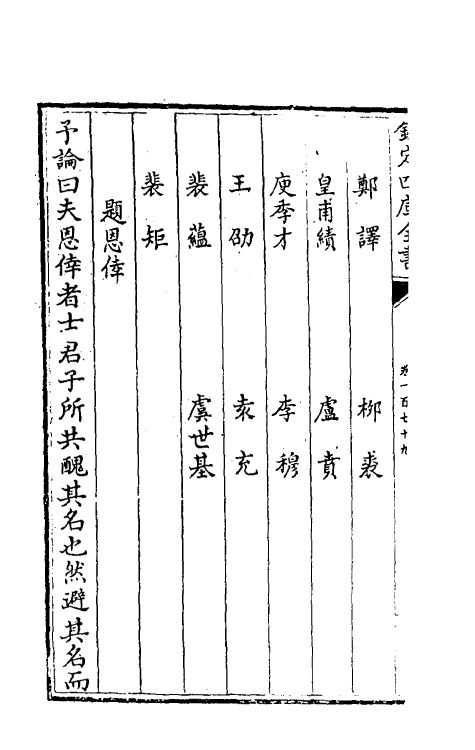 欽定四庫全書
卷一百七十九
鄭譯 柳裘
皇甫績 盧賁
庾季才 李穆
王劭 袁充
裴蘊 虞世基
裴矩
題恩倖
予論曰夫恩倖者士君子所共醜其名也然避其名而